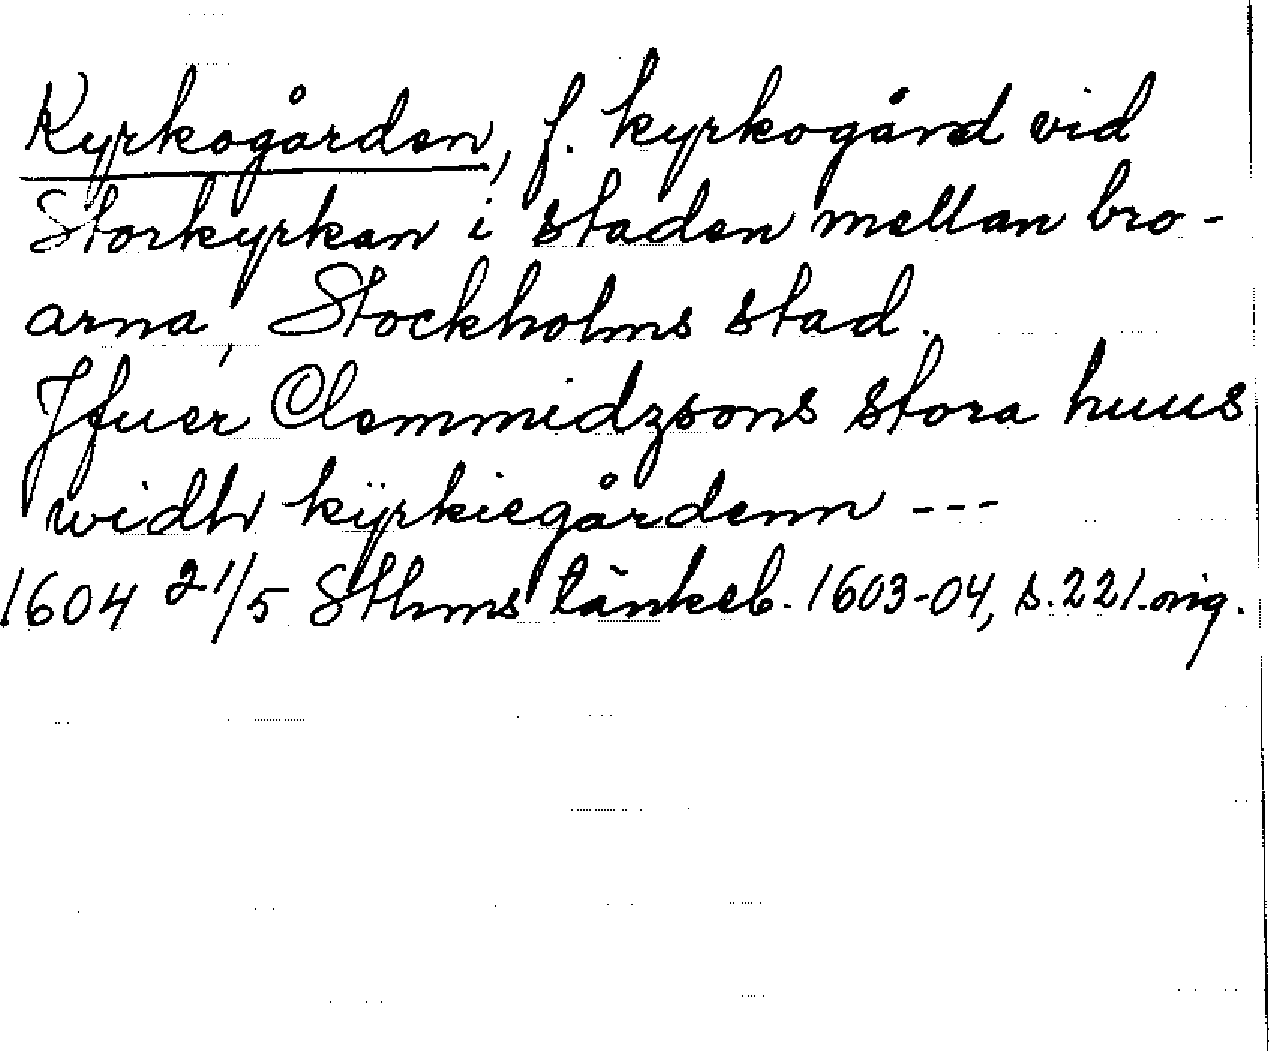 Kyrkogården, f. kyrkogård vid
Storkyrkan i staden mellan bro-
arna, Stockholms stad.
Jfuer Clemmidzsons stora huus
widh kÿrkiegårdenn ---
1604 21/5 Sthms tänkeb. 1603-04, s. 221. orig.